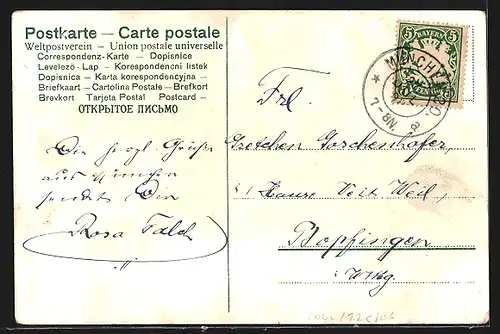 Postkarte — Carte postale
Weltpostverein — Union postale universelle
Correspondenz-Karte — Dopisnice
Levelező-Lap — Korespondencni listek
Dopisnica — Karta korespondencyjna —
Briefkaart — Cartolina Postale — Brefkort
Brevkort Tarjeta Postal Postcard —
ОТКРЫТОЕ ПИСЬМО
Die herzl. Grüße
aus München
sendet Dir
Rosa
BAYERN
5 5
MÜNCHEN
7-8N.
Frl.
Gretchen Gerschenhofer,
Hause Veit Weil,
Bopfingen
Wttbg.